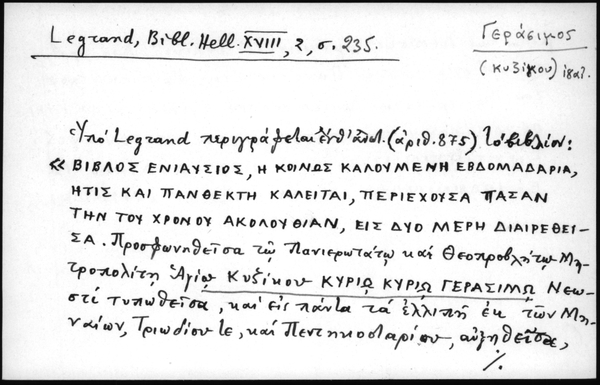 Legrand, Bibl. Hell. XVIII, 2, σ. 235.
Γεράσιμος
(Κυζίκου)
Ὑπό Legrand περιγράφεται (ἀριθ. 875) τὸ βιβλίον:
« ΒΙΒΛΟΣ ΕΝΙΑΥΣΙΟΣ, Η ΚΟΙΝΩΣ ΚΑΛΟΥΜΕΝΗ ΕΒΔΟΜΑΔΑΡΙΑ,
ΗΤΙΣ ΚΑΙ ΠΑΝΘΕΚΤΗ ΚΑΛΕΙΤΑΙ, ΠΕΡΙΕΧΟΥΣΑ ΠΑΣΑΝ
ΤΗΝ ΤΟΥ ΧΡΟΝΟΥ ΑΚΟΛΟΥΘΙΑΝ, ΕΙΣ ΔΥΟ ΜΕΡΗ ΔΙΑΙΡΕΘΕΙ-
ΣΑ. Προσφωνηθεῖσα τῷ Πανιερωτάτῳ καί Θεοπροβλήτῳ Μη-
τροπολίτῃ Ἁγίῳ Κυζίκου ΚΥΡΙῼ ΚΥΡΙῼ ΓΕΡΑΣΙΜῼ Νεω-
στί τυπωθεῖσα, καί εἰς πάντα τά ἐλλιπῆ ἐκ τῶν Μη-
ναίων, Τριωδίου τε, καί Πεντηκοσταρίου, αὐξηθεῖσα,
./.